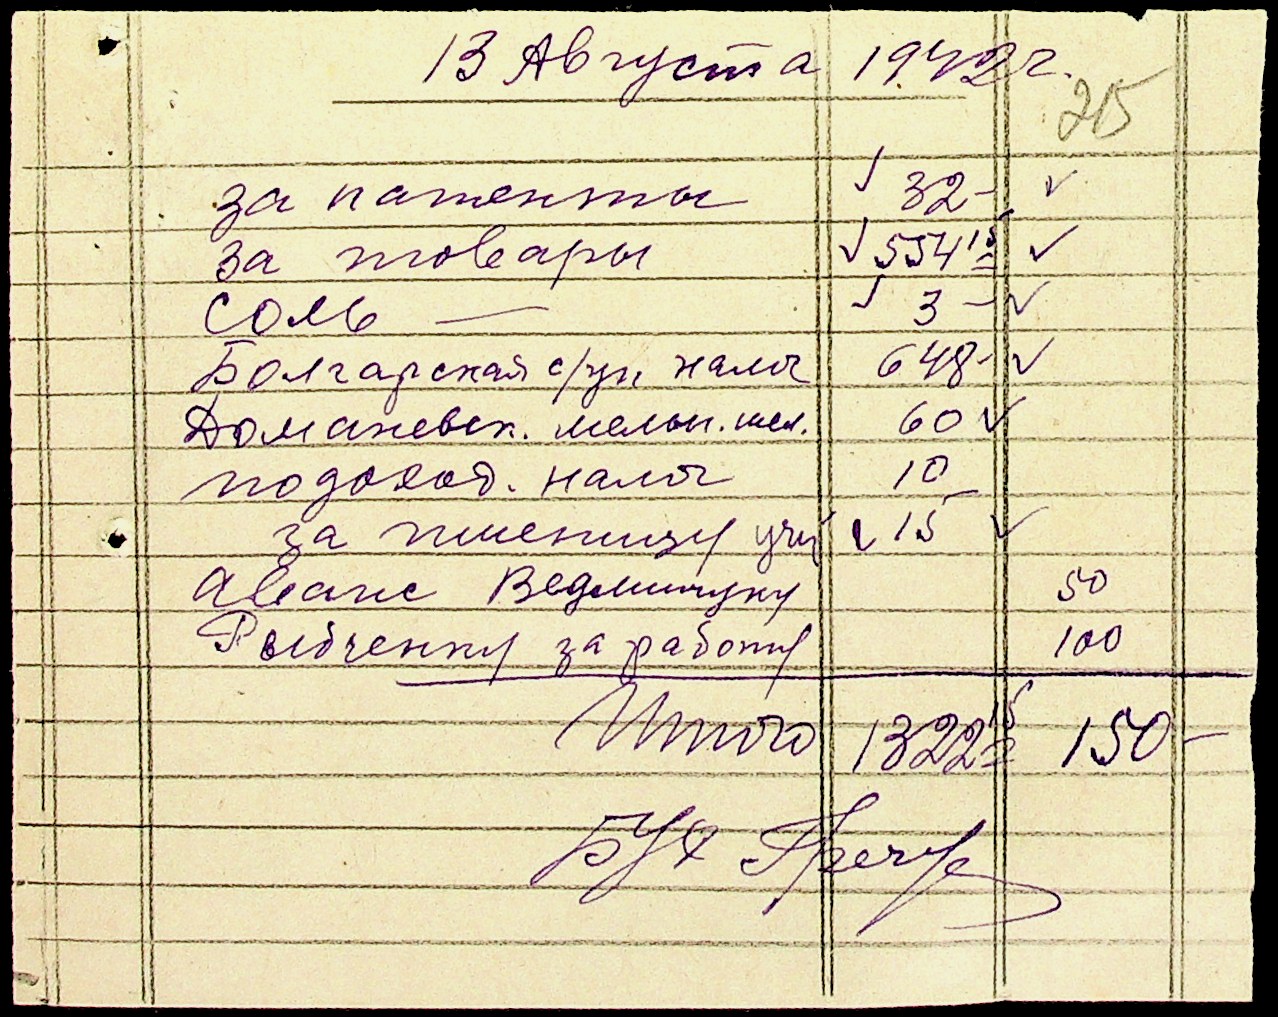 13 Августа 1942 г.
215
за патенты 32-
за товары 554 15
соль — 3 -
Болгарской с/уп. налог 648-
Доманевск. мельн. 60
подоход. налог 10
за пшеницу 15-
Аванс Ведмичуку 50
Рыбченку за работу 100
Итого 1322 15 150-
Бух